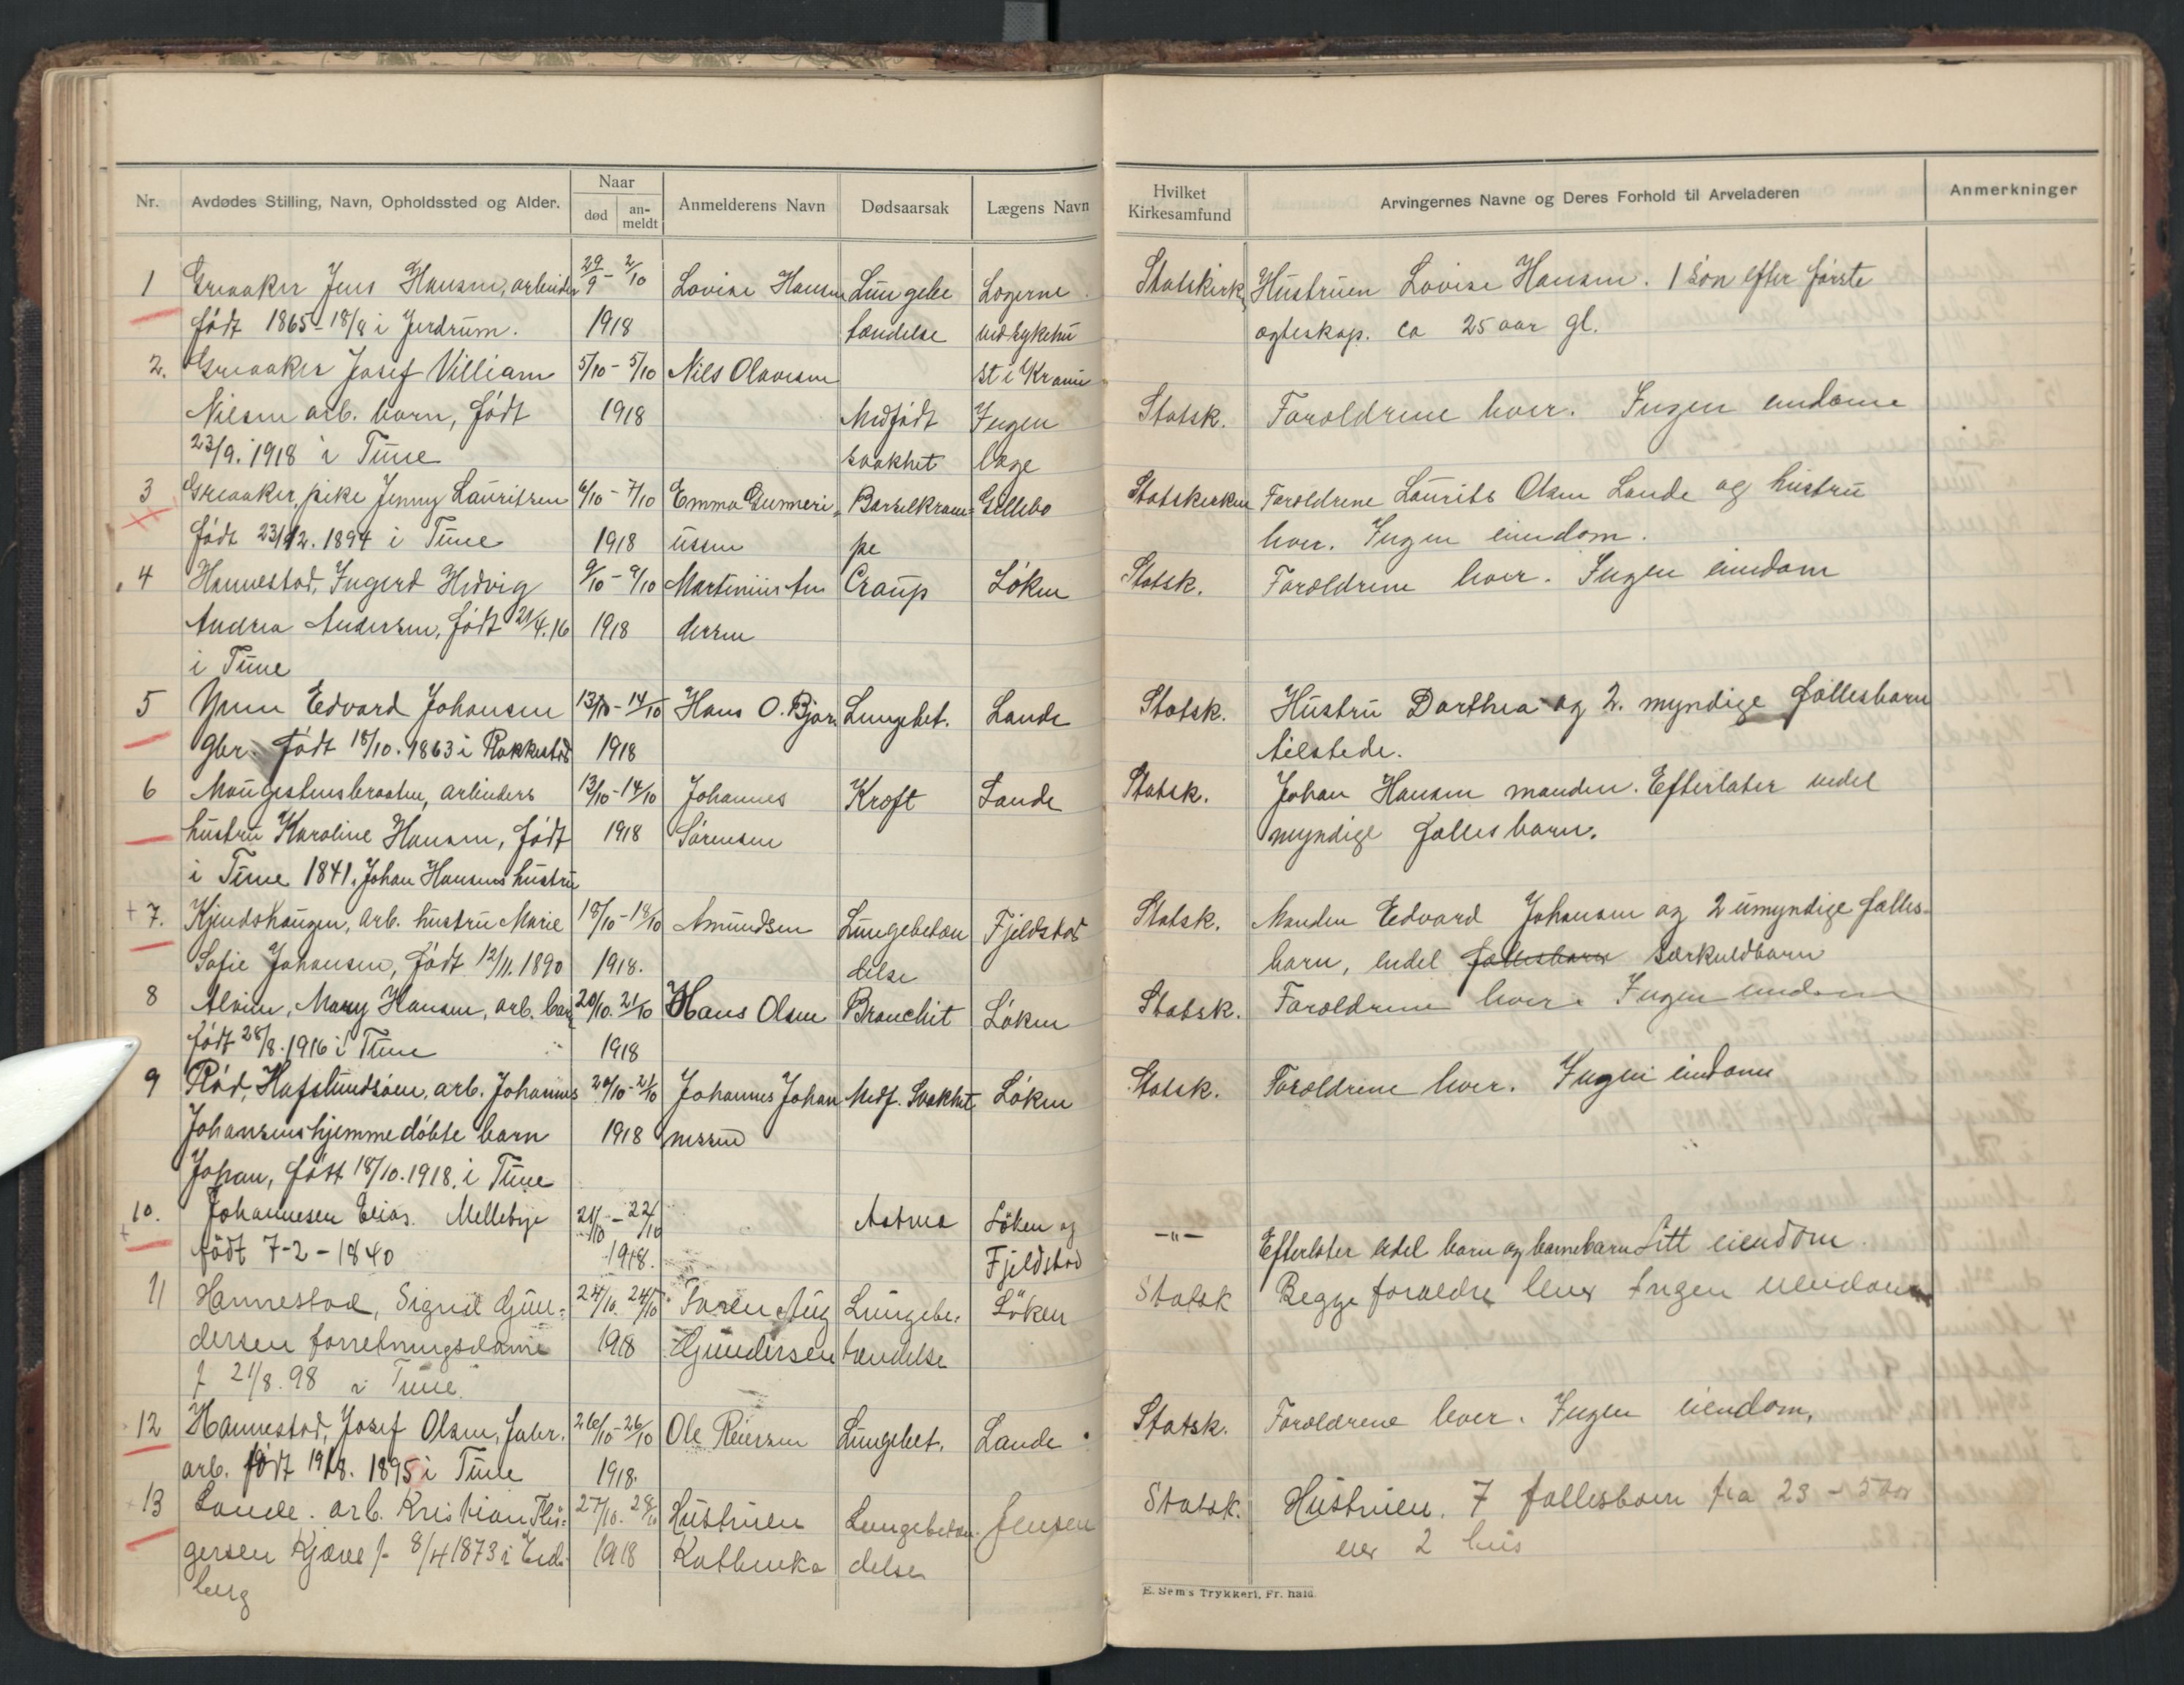 Nr.
Avdødes Stilling, Navn, Opholdssted og Alder.
Naar
død
an-
meldt
Anmelderens Navn
Dødsaarsak
Lægens Navn
Hvilket
Kirkesamfund
Arvingernes Navne og Deres Forhold til Arveladeren
Anmerkninger
1 Greaaker Jens Hansen, arbeider 29/9 - 2/10 Lovise Hansen Lungebe Lægerne Statskirk Hustruen Lovise Hansen. 1 søn efter første
født 1865 - 18/8 i Jerdrum. 1918 tændelse ved sykehu ægteskap. ca 25 aar gl.
2. Greaaker Josef Villiam 5/10 - 5/10 Nils Olavesen st i
Nilsen arb. barn, født 1918 Medfødt Ingen Statsk. Foræld­rene lever. Ingen eiendome
23/9. 1918 i Tune svakhet læge
3 Greaaker, pike Jenny Lauritsen 6/10 - 7/10 Emma Gunneri- Barselkram- Gillebo Statskirken Forældrene Laurits Olsen Lande og hustru
født 23/12. 1894 i Tune 1918 ussen pe lever. Ingen eiendom.
4 Hannestad, Ingerd Hedvig 9/10 - 9/10 Martinius An Croup Løken Statsk. Forældrene lever. Ingen eiendom
Andrea Andersen, født 21/4. 16 1918 dersen
i Tune
5 Edvard Johansen 13/10 - 14/10 Hans O. Bjør Lungebet. Lande Statsk. Hustru Dorthea og 2. myndige fællesbarn
gbr. født 18/10. 1863 i Rakkestad 1918 tilstede.
6 Haugestensbraaten, arbeiders 13/10 - 14/10 Johannes Kræft Lande Statsk. Johan Hansen manden. Efterlater endel
hustru Karoline Hansen, født 1918 Sørensen myndige fællesbarn.
i Tune 1841. Johan Hansens hustru
7. Kjendshaugen, arb. hustru Marie 18/10 - 18/10 Amundsen Lungebetæn Fjeldstad Statsk. Manden Edvard Johansen og 2 umyndige fælles-
Sofie Johansen, født 12/11. 1890 1918. delse barn, endel fællesbarn særkuldbarn
8 Alvim, Mary Hansen, arb. barn 20/10. 21/10 Hans Olsen Bronchit Løken Statsk. Forældrene lever. Ingen eiendom
født 28/8. 1916 i Tune 1918
9 Rød, Hafslundsøen, arb. Johannes 20/10 - 21/10 Johannes Johan Medf. Svakhet Løken Statsk. Forældrene lever. Ingen eiendom
Johansens hjemmedøbte barn 1918 nessen
Johan, født 18/10. 1918. i Tune
10. Johannesen Elias. Mellebye 21/10 - 22/10 Astma Løken og -"- Efterlater endel barn og barnebarn Litt eiendom.
født 7-2-1840 1918. Fjeldstad
11 Hannestad, Sigrid Gun- 24/10. 24/10 Aug Lungebe- Löken Statsk Begge forældre lever Ingen eiendom
dersen forretningsdame 1918 Gundersen tændelse
f 21/8. 98 i Tune.
12 Hannestad, Josef Olsen, fabr. 26/10 - 26/10 Ole Reiersen Lungebet. Lande Statsk. Forældrene lever. Ingen eiendom.
arb. født 19/8. 1895 i Tune 1918.
13 Lande. arb. Kristian 27/10. 28/10 Hustruen Lungebetæn- Jensen Statsk. Hustruen. 7 fællesbarn fra 23 - 5 aar
gersen Kjære f. 8/4 1873 i Eids- 1918 Kathinka delse eier 2 hus
berg
E. Sem's Trykkeri, Fr.hald.